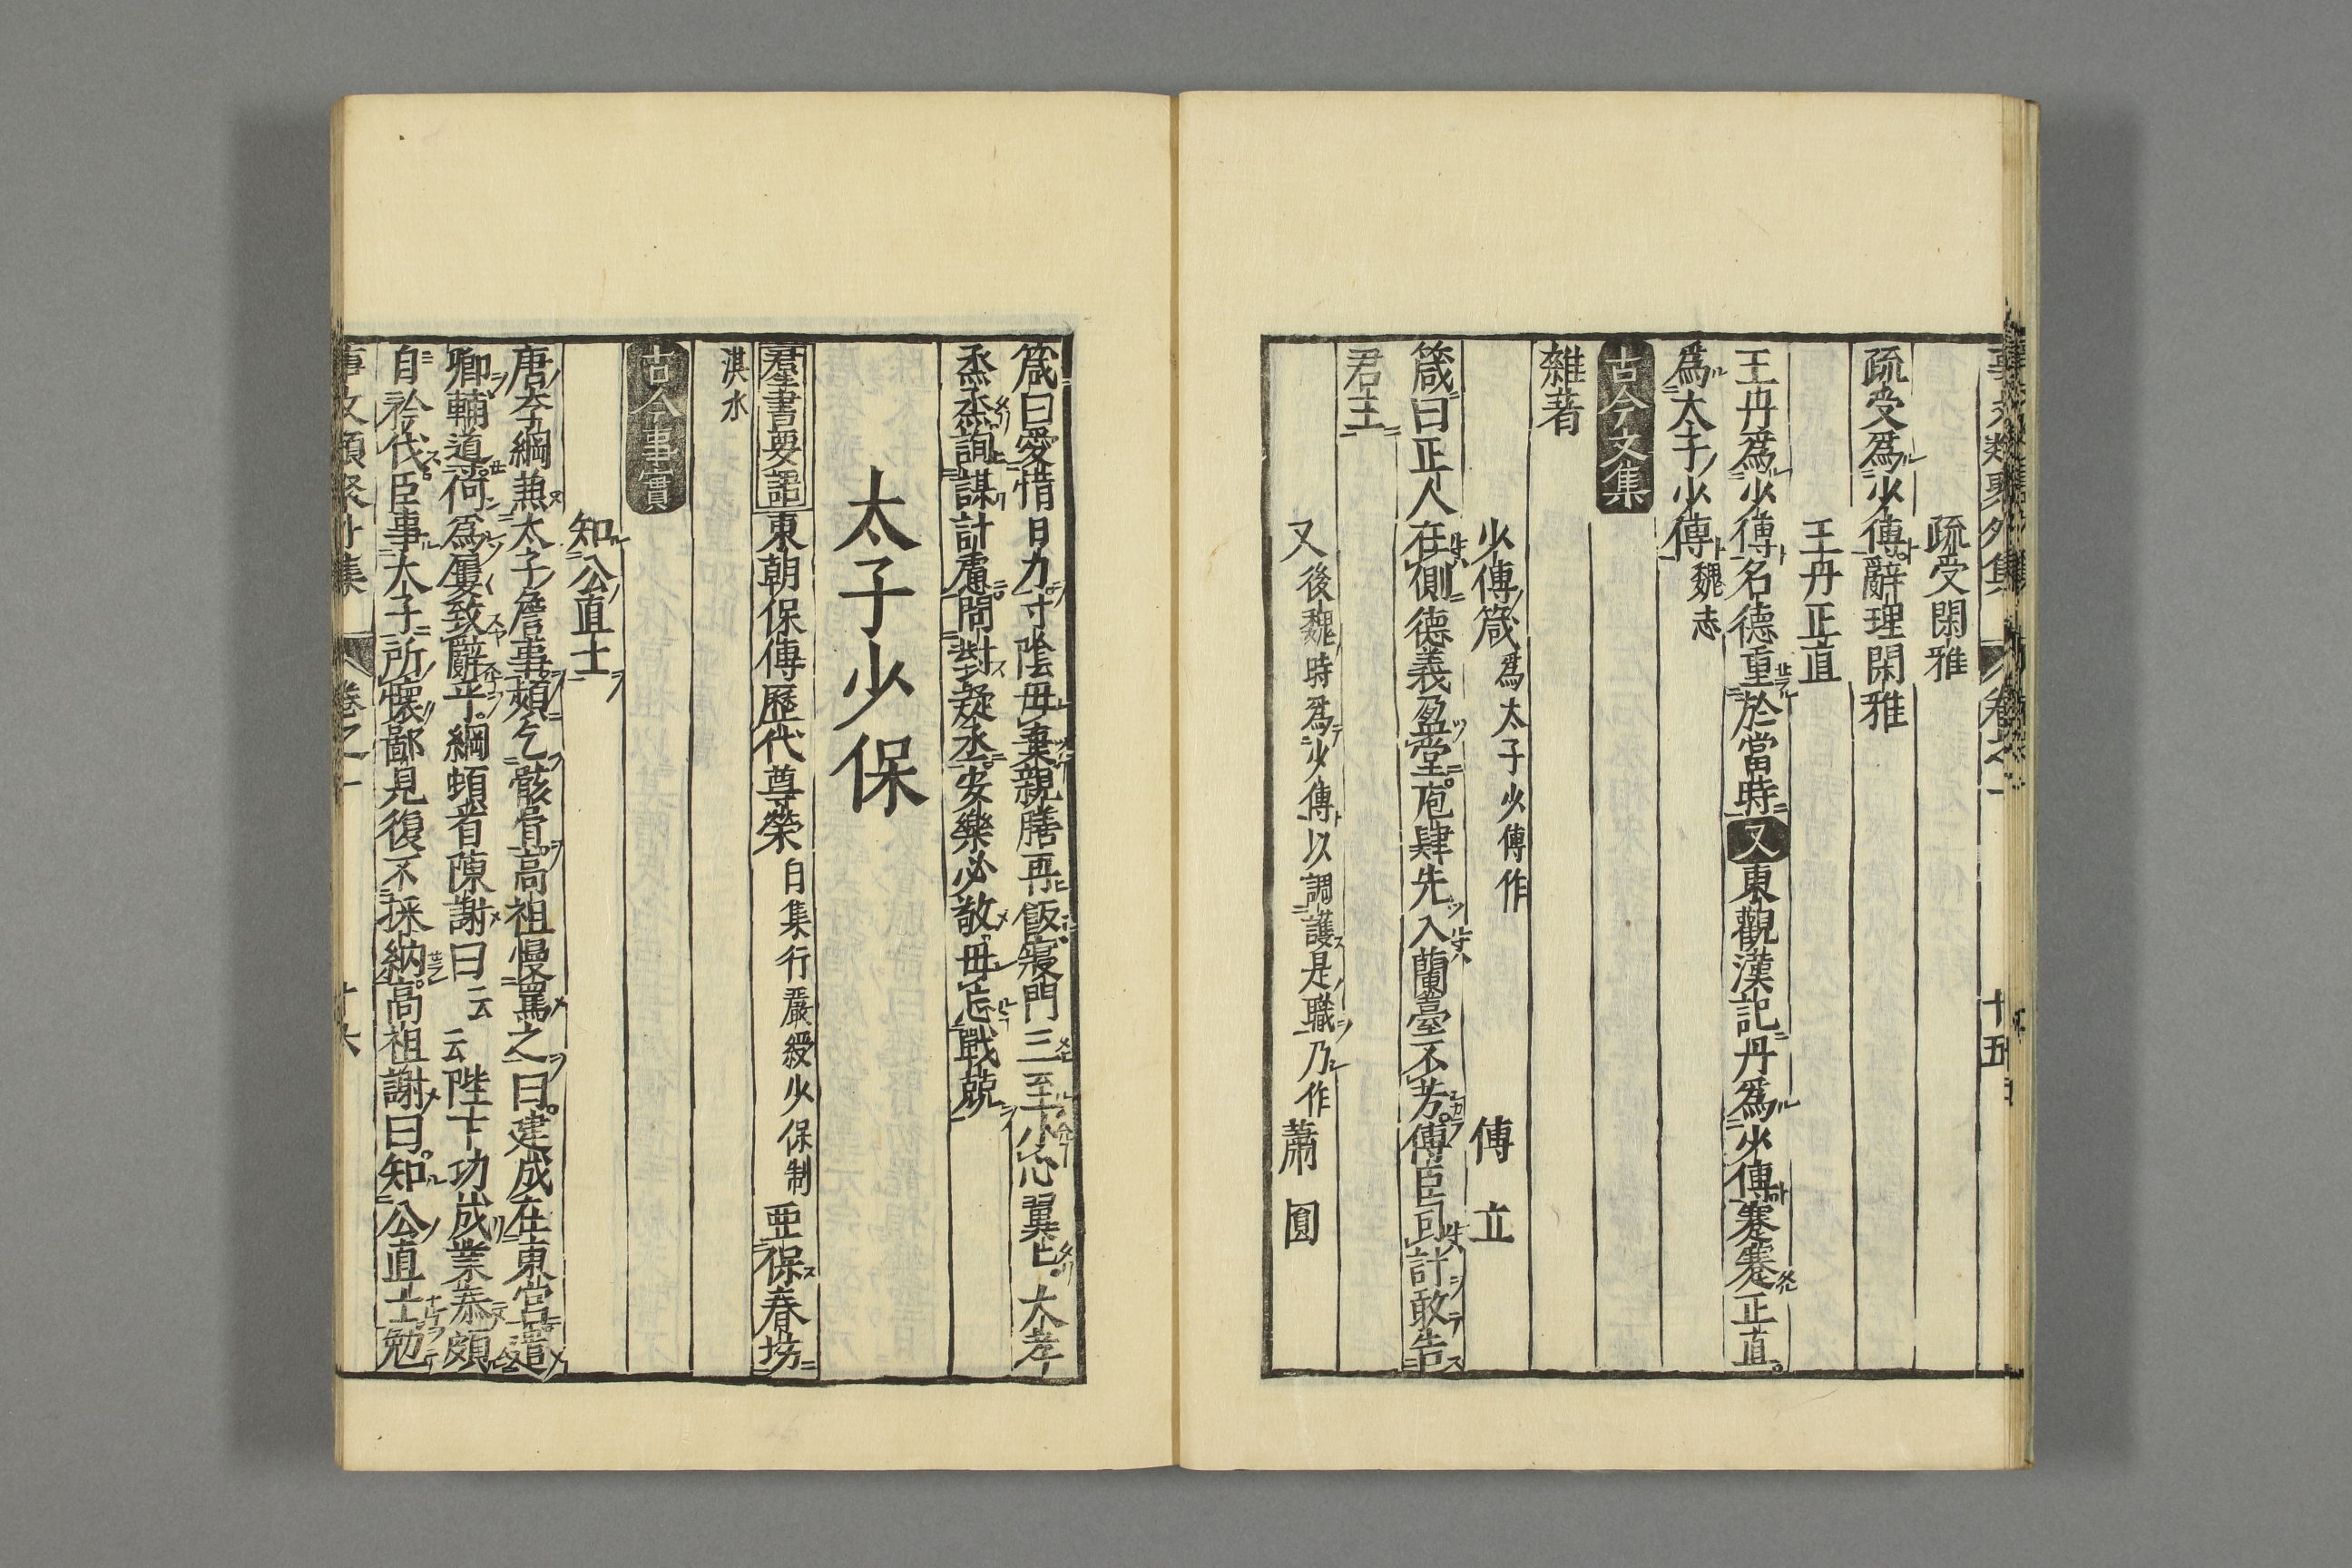 事文類聚外集　卷之一　十五
疏受閑雅
疏受爲少傅辭理閑雅
王丹正直
王丹爲少傅名德重於當時又東觀漢記丹爲少傅蹇蹇正直
爲太子少傅魏志
古今文集
雜著
少傅箴爲太子少傅作　傅立
箴曰正人在側德義盈堂庖肆先入蘭臺不芳傅臣司計敢告
君主
又後魏時爲少傅以調護是職乃作　蕭圓
箴曰愛惜日力寸陰毋棄親膳再飯寢門三至小心翼〻大孝
烝烝詢謀計慮問對疑丞安樂必敬毋忘戰兢
太子少保
羣書要語東朝保傅歷代尊榮白集行嚴綬少保制亞保春坊
淇水
古今事實
知公直士
唐李綱兼太子詹事頻乞骸骨高祖慢罵之曰建成在東宮遣
卿輔道何爲屢致辭乎綱頓首陳謝曰云云陛下功成業泰頗
自矜伐臣事太子所懷鄙見復不採納高祖謝曰知公直士勉
事文類聚外集　卷之一　十六